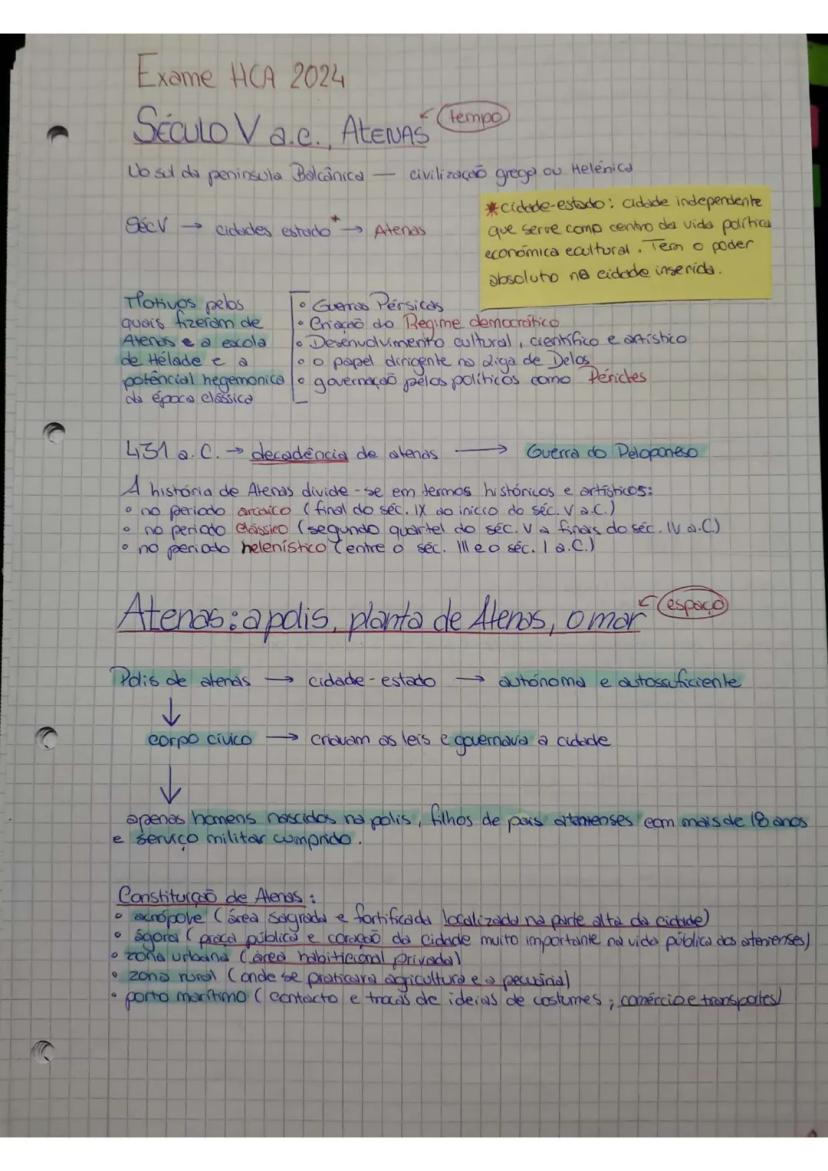 Exame HCA 2024
SÉCULO V a.c., ATENAS
tempo
No sul da península Balcânica — civilização grega ou Helénica
*cidade-estado: cidade independente
que serve como centro da vida política
económica e cultural. Tem o poder
absoluto na cidade inserida.
SécV → cidades estado* → Atenas
Motivos pelos
quais fizeram de
Atenas e a escola
de Hélade e a
potêncial hegemonica
da época clássica
• Guerras Pérsicas
• Criação do Regime democrático
• Desenvolvimento cultural, científico e artístico
• o papel dirigente na Liga de Delos
• governação pelos políticos como Péricles
431 a.C. → decadência de atenas → Guerra do Peloponeso
A história de Atenas divide-se em termos históricos e artísticos:
• no periodo arcaico (final do séc. IX do início do séc. V a.C.)
• no periodo clássico (segundo quartel do séc. V a finais do séc. IV a.C)
• no periodo helenístico (entre o séc. III e o séc. I a.C.)
Atenas: a polis, planta de Atenas, o mar
espaço
Polis de atenas → cidade-estado → autónoma e autossuficiente
corpo cívico → criavam as leis e governava a cidade
apenas homens nascidos na polis, filhos de pais atenienses com mais de 18 anos
e serviço militar cumprido.
Constituição de Atenas:
• acrópole (área sagrada e fortificada localizada na parte alta da cidade)
• ágora (praça pública e coração da cidade muito importante na vida pública dos atenienses)
• zona urbana (área habiticional privada)
• zona rural (onde se praticava agricultura e a pecuária)
• porto marítimo (contacto e trocas de ideias de costumes; comércio e transportes)